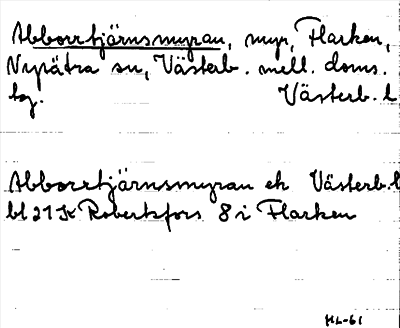 Abborrtjärnsmyran, myr, Flarken,
Nysätra sn, Västerb. mell. doms.
tg. Västerb. l
Abborrtjärnsmyran ek Västerb. l
bl 21 K Robertsfors 8 i Flarken
HL-61